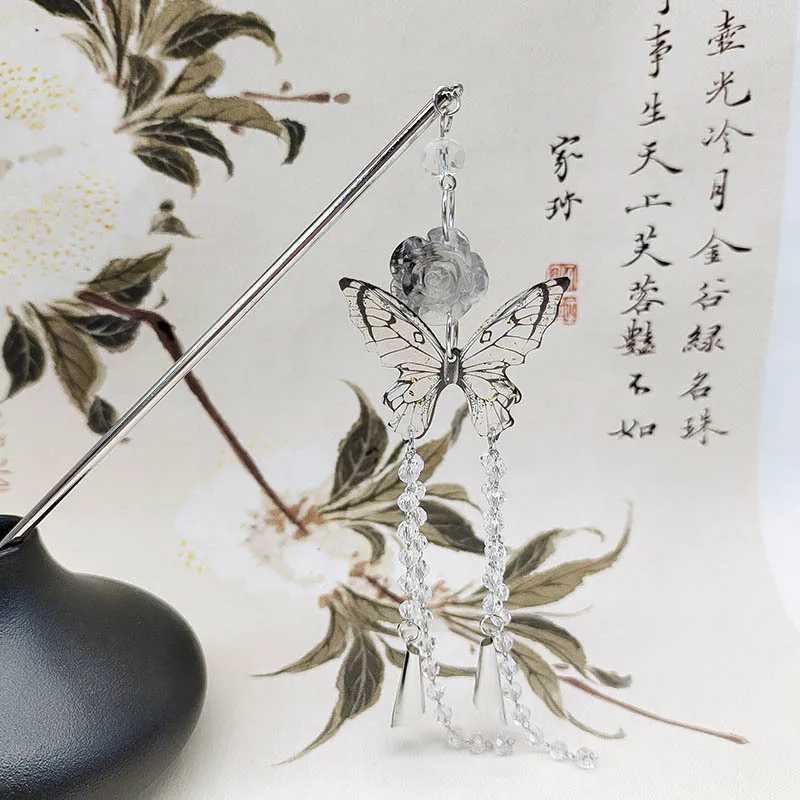 壺光冷月金谷緑名珠
事生天工芙蓉豔不如
家珎